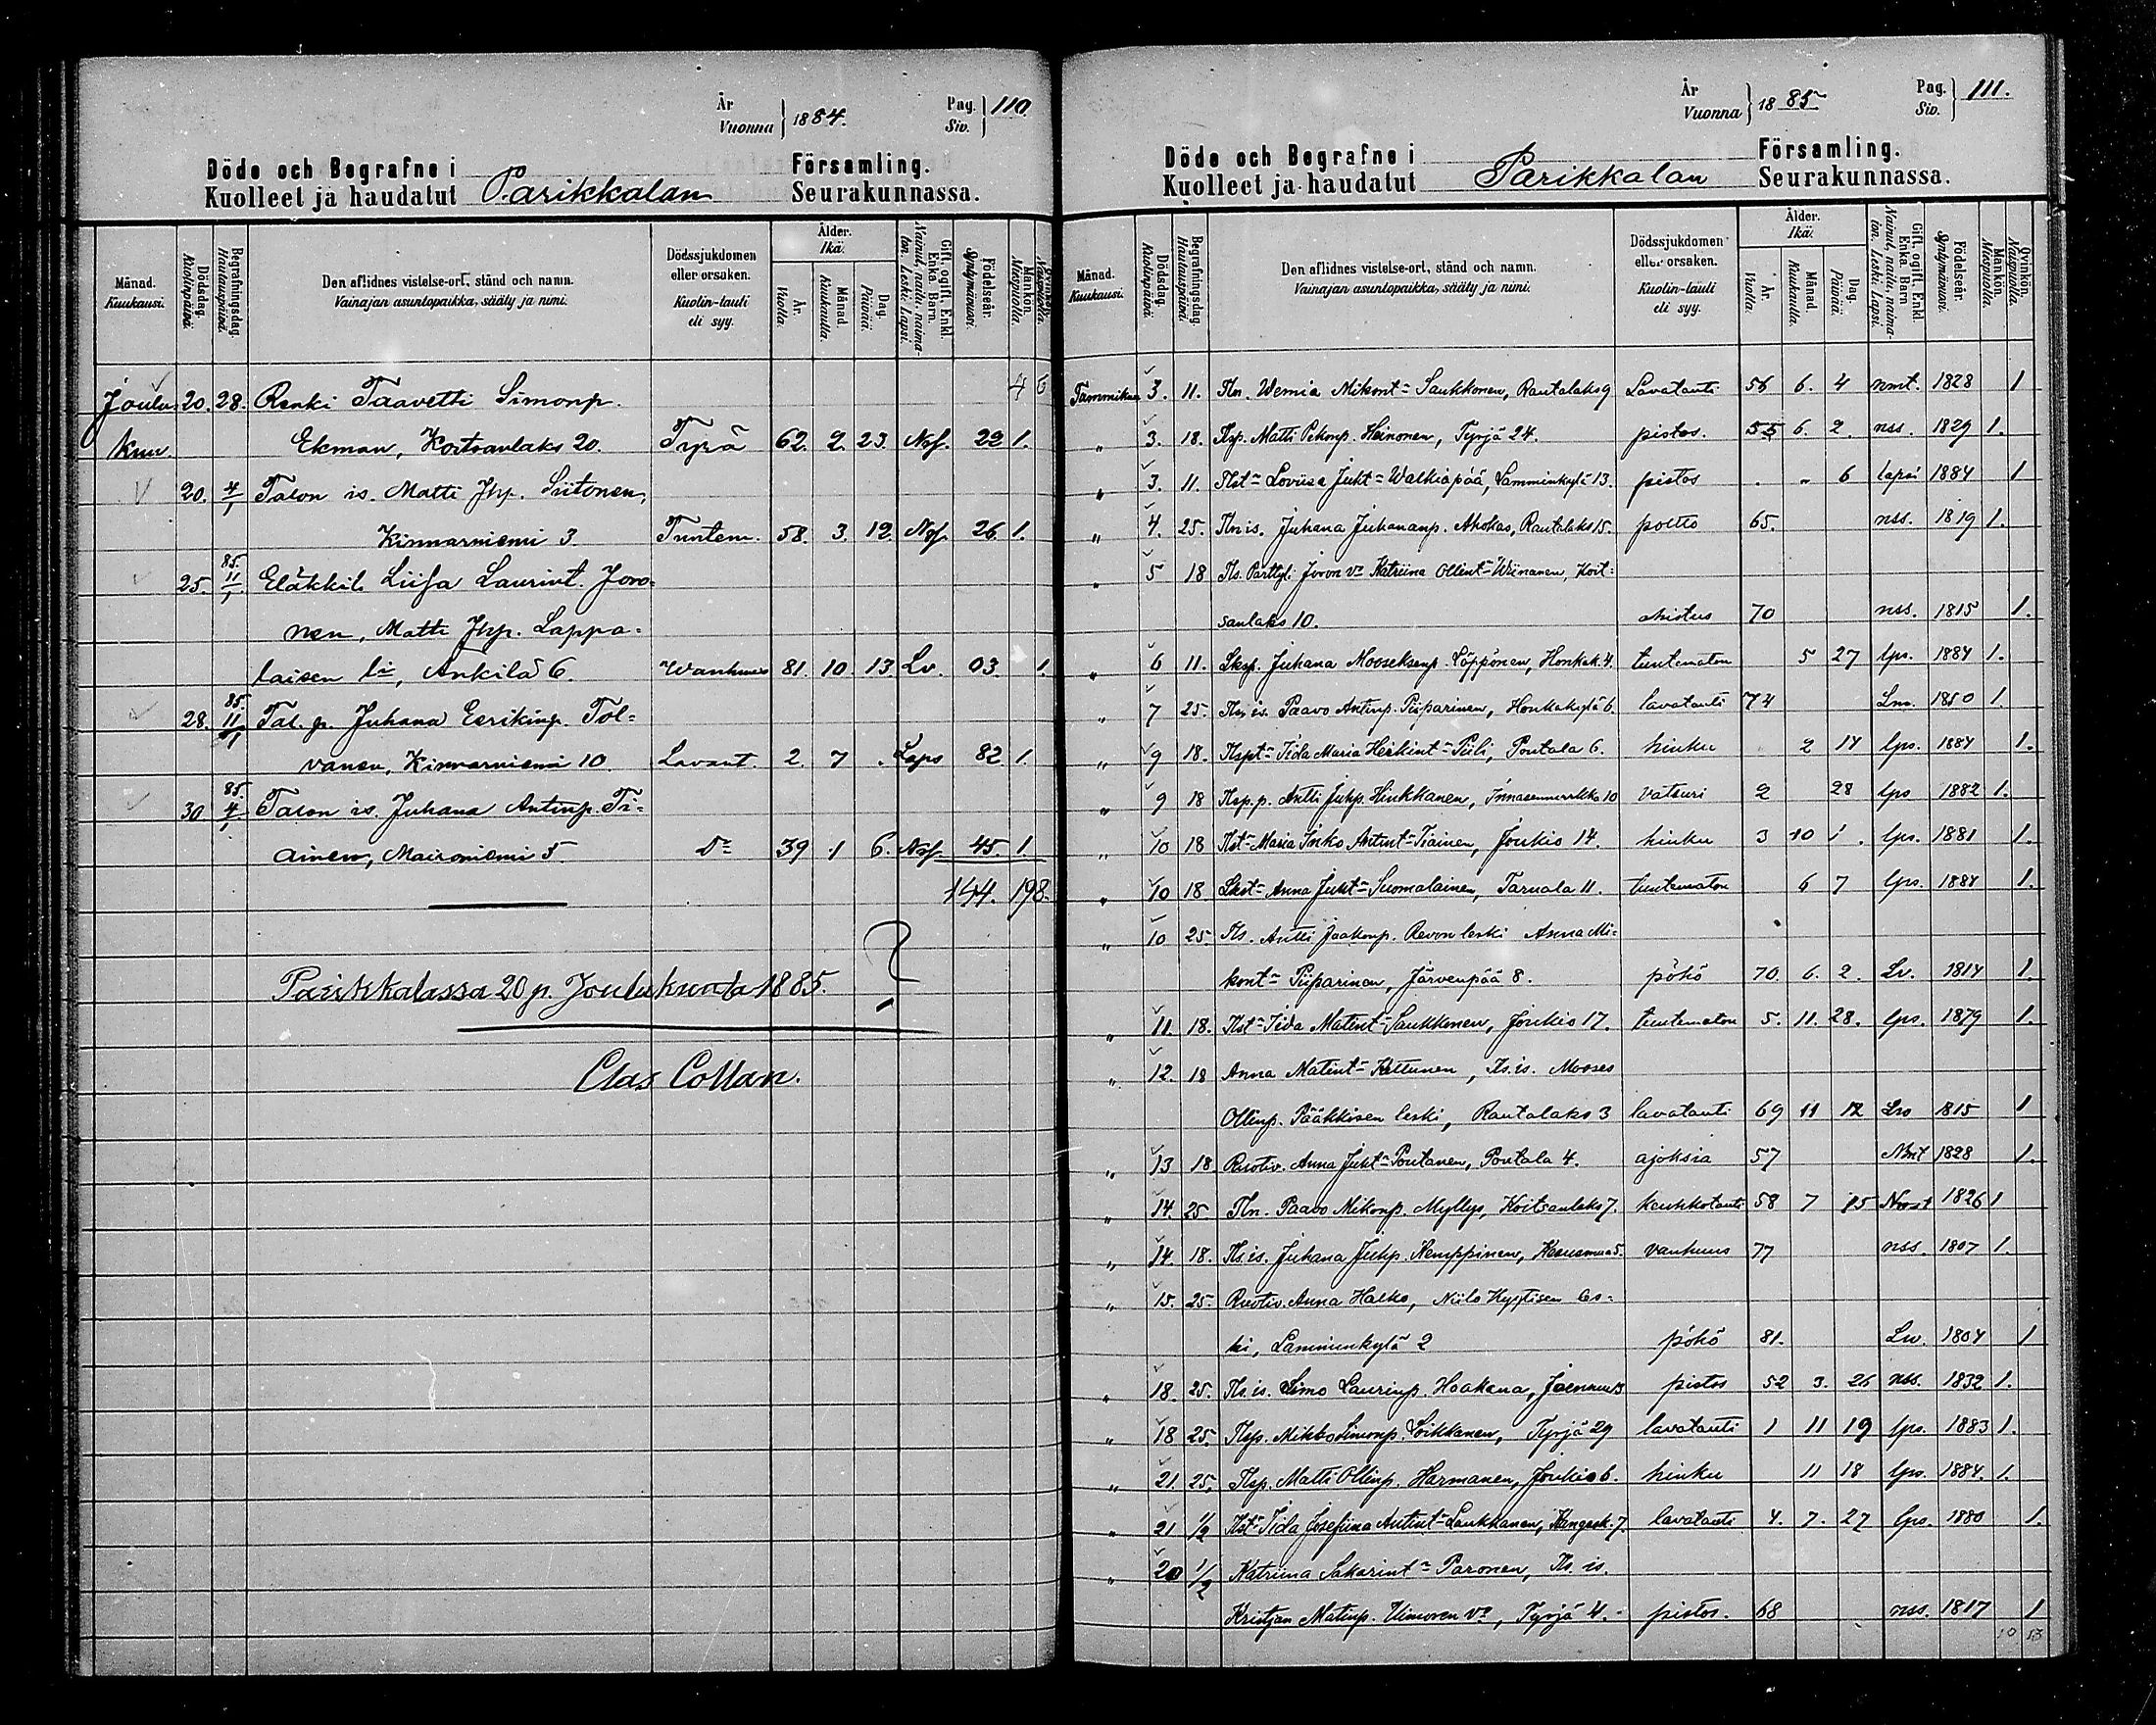 År
Vuonna } 1884.
Pag.
Siv. } 110.
Döde och Begrafne i Församling.
Kuolleet ja haudatut Parikkalan Seurakunnassa.
Månad. Kuukausi.
Dödsdag. Kuolinpäivä.
Begrafningsdag. Hautauspäivä.
Den aflidnes vistelse-ort, stånd och namn.
Vainajan asuntopaikka, sääty ja nimi.
Dödssjukdomen eller orsaken.
Kuolin-tauti eli syy.
Ålder. Ikä.
År. Vuotta.
Månad. Kuukautta.
Dag. Päivää.
Gift, ogift, Enkl. Enka. Barn.
Nainut, naitu, naimaton. Leski. Lapsi.
Födelseår. Syntymävuosi.
Mankön. Miespuolia.
4 6
Joulu 20. 28. Renki Taavetti Simonp.
kuu. Ekman, Koitsanlaks 20. Tyrä 62. 2. 23. Nsf. 22 1.
20. 4/1 Talon is. Matti Jhp. Siitonen,
Kinnarniemi 3 Tuntem. 58. 3. 12. Nsf. 26. 1.
25. 85. 11/1 Eläkkil. Liisa Laurint. Joro-
nen, Matti Jhp. Lappa-
laisen li, Ankila 6. Wanhuus 81. 10. 13. Lv. 03. 1.
28. 85. 11/1 Tal. p. Juhana Eerikinp. Tol-
vanen, Kinnarniemi 10. Lavant. 2. 7 . Laps 82. 1.
30 85. 4/1 Talon is. Juhana Antinp. Ti-
ainen, Maironiemi 5. Do 39 1 6. Nsf. 45. 1.
144. 198.
Parikkalassa 20 p. Joulukuuta 1885.
Clas Collan.
År
Vuonna } 1885
Pag.
Siv. } 111.
Döde och Begrafne i Församling.
Kuolleet ja haudatut Parikkalan Seurakunnassa.
Månad. Kuukausi.
Dödsdag. Kuolinpäivä.
Begrafningsdag. Hautauspäivä.
Den aflidnes vistelse-ort, stånd och namn.
Vainajan asuntopaikka, sääty ja nimi.
Dödssjukdomen eller orsaken.
Kuolin-tauti eli syy.
Ålder. Ikä.
År. Vuotta.
Månad. Kuukautta.
Dag. Päivää.
Gift, ogift, Enkl. Enka. Barn
Nainut, naitu, naimaton. Leski. Lapsi.
Födelseår. Syntymävuosi.
Mankön. Miespuolia.
Qvinkön. Naispuolia.
Tammikuu 3. 11. Tln. Wernia Mikont- Saukkonen, Rautalaks 9 Lavatauti 56 6. 4 nmt. 1828 1
" 3. 18. Tlsp. Matti Pekonp. Heinonen, Tyrjä 24. pistos. 55 6. 2. nss. 1829 1.
" 3. 11. Tlst- Loviisa Juht- Walkiapää, Lamminkylä 13. pistos . " 6 lapsi 1884 1
" 4. 25. Tln is. Juhana Juhananp. Ahokas, Rautalaks 15. poltto 65. nss. 1819 1.
" 5 18 Tls. Parttyli Jovon vo Katriina Ollint- Wiinanen, Koit-
sanlaks 10. ahistus 70 nss. 1815 1.
" 6 11. Lksp. Juhana Mooseksenp. Löppönen, Honkak. 4. tuntematon 5 27 lps. 1884 1.
" 7 25. Tls. is. Paavo Antinp. Piiparinen, Honkakylä 6. lavatauti 74 Lm. 1810 1.
" 9 18. Tlspt- Iida Maria Heikint- Piili, Poutala 6. hinku 2 14 lps. 1884 1.
" 9 18 Tlsp. p. Antti Juhp. Hinkkanen, Innasennurkka 10 vatsuri 2 28 lps 1882 1.
" 10 18 Tlst- Maria Inko Antint- Tiainen, Joukio 14. hinku 3 10 1. lps. 1881 1.
" 10 18. Lkst- Anna Juht- Suomalainen, Tarnala 11. tuntematon 6 7 lps. 1884 1.
" 10 25. Tls. Antti Jaakonp. Revon leski Anna Mi-
kont- Piiparinen, Järvenpää 8. pöhö 70. 6. 2. Lv. 1814 1.
" 11. 18. Tlst- Iida Matint- Saukkonen, Joukio 17. tuntematon 5. 11. 28. lps. 1879 1.
" 12. 18 Anna Matint- Kettunen, Tls. is. Mooses
Ollinp. Pääkkösen leski, Rautalaks 3 lavatauti 69 11 12 Lso 1815 1
" 13 18 Ruotiv. Anna Juht- Poutanen, Poutala 4. ajoksia 57 Nmt 1828 1.
" 14. 25. Tln. Paavo Mikonp. Myllys, Koitsanlaks 7. keuhkotauti 58 7 15 1826 1
" 14. 18. Tls. is. Juhana Juhp. Kemppinen, Kesusmaa 5. vanhuus 77 nss. 1807 1.
" 15. 25. Ruotiv. Anna Halko, Niilo Hyytisen les-
ki, Lamminkylä 2 pöhö 81. Lw. 1804 1
" 18. 25. Tls. is. Simo Laurinp. Haakana, pistos 52 3. 26 nss. 1832 1.
" 18 25. Tlsp. Mikko Simonp. Loikkanen, Tyrjä 29 lavatauti 1 11 19 lps. 1883 1.
" 21. 25. Tlsp. Matti Ollinp. Harmanen, Joukio 6. hinku 11 18 lps. 1884. 1.
" 21 1/2 Tlst- Iida Josefiina Antint- Laukkanen, Kangask. 7. lavatauti 4. 7. 27 lps. 1880 1.
" 20 1/2 Katriina Sakarint- Paronen, Tls. is.
Kristjan Matinp. Uimosen vo, Tyrjä 4. pistos. 68 nss. 1817 1
10 13